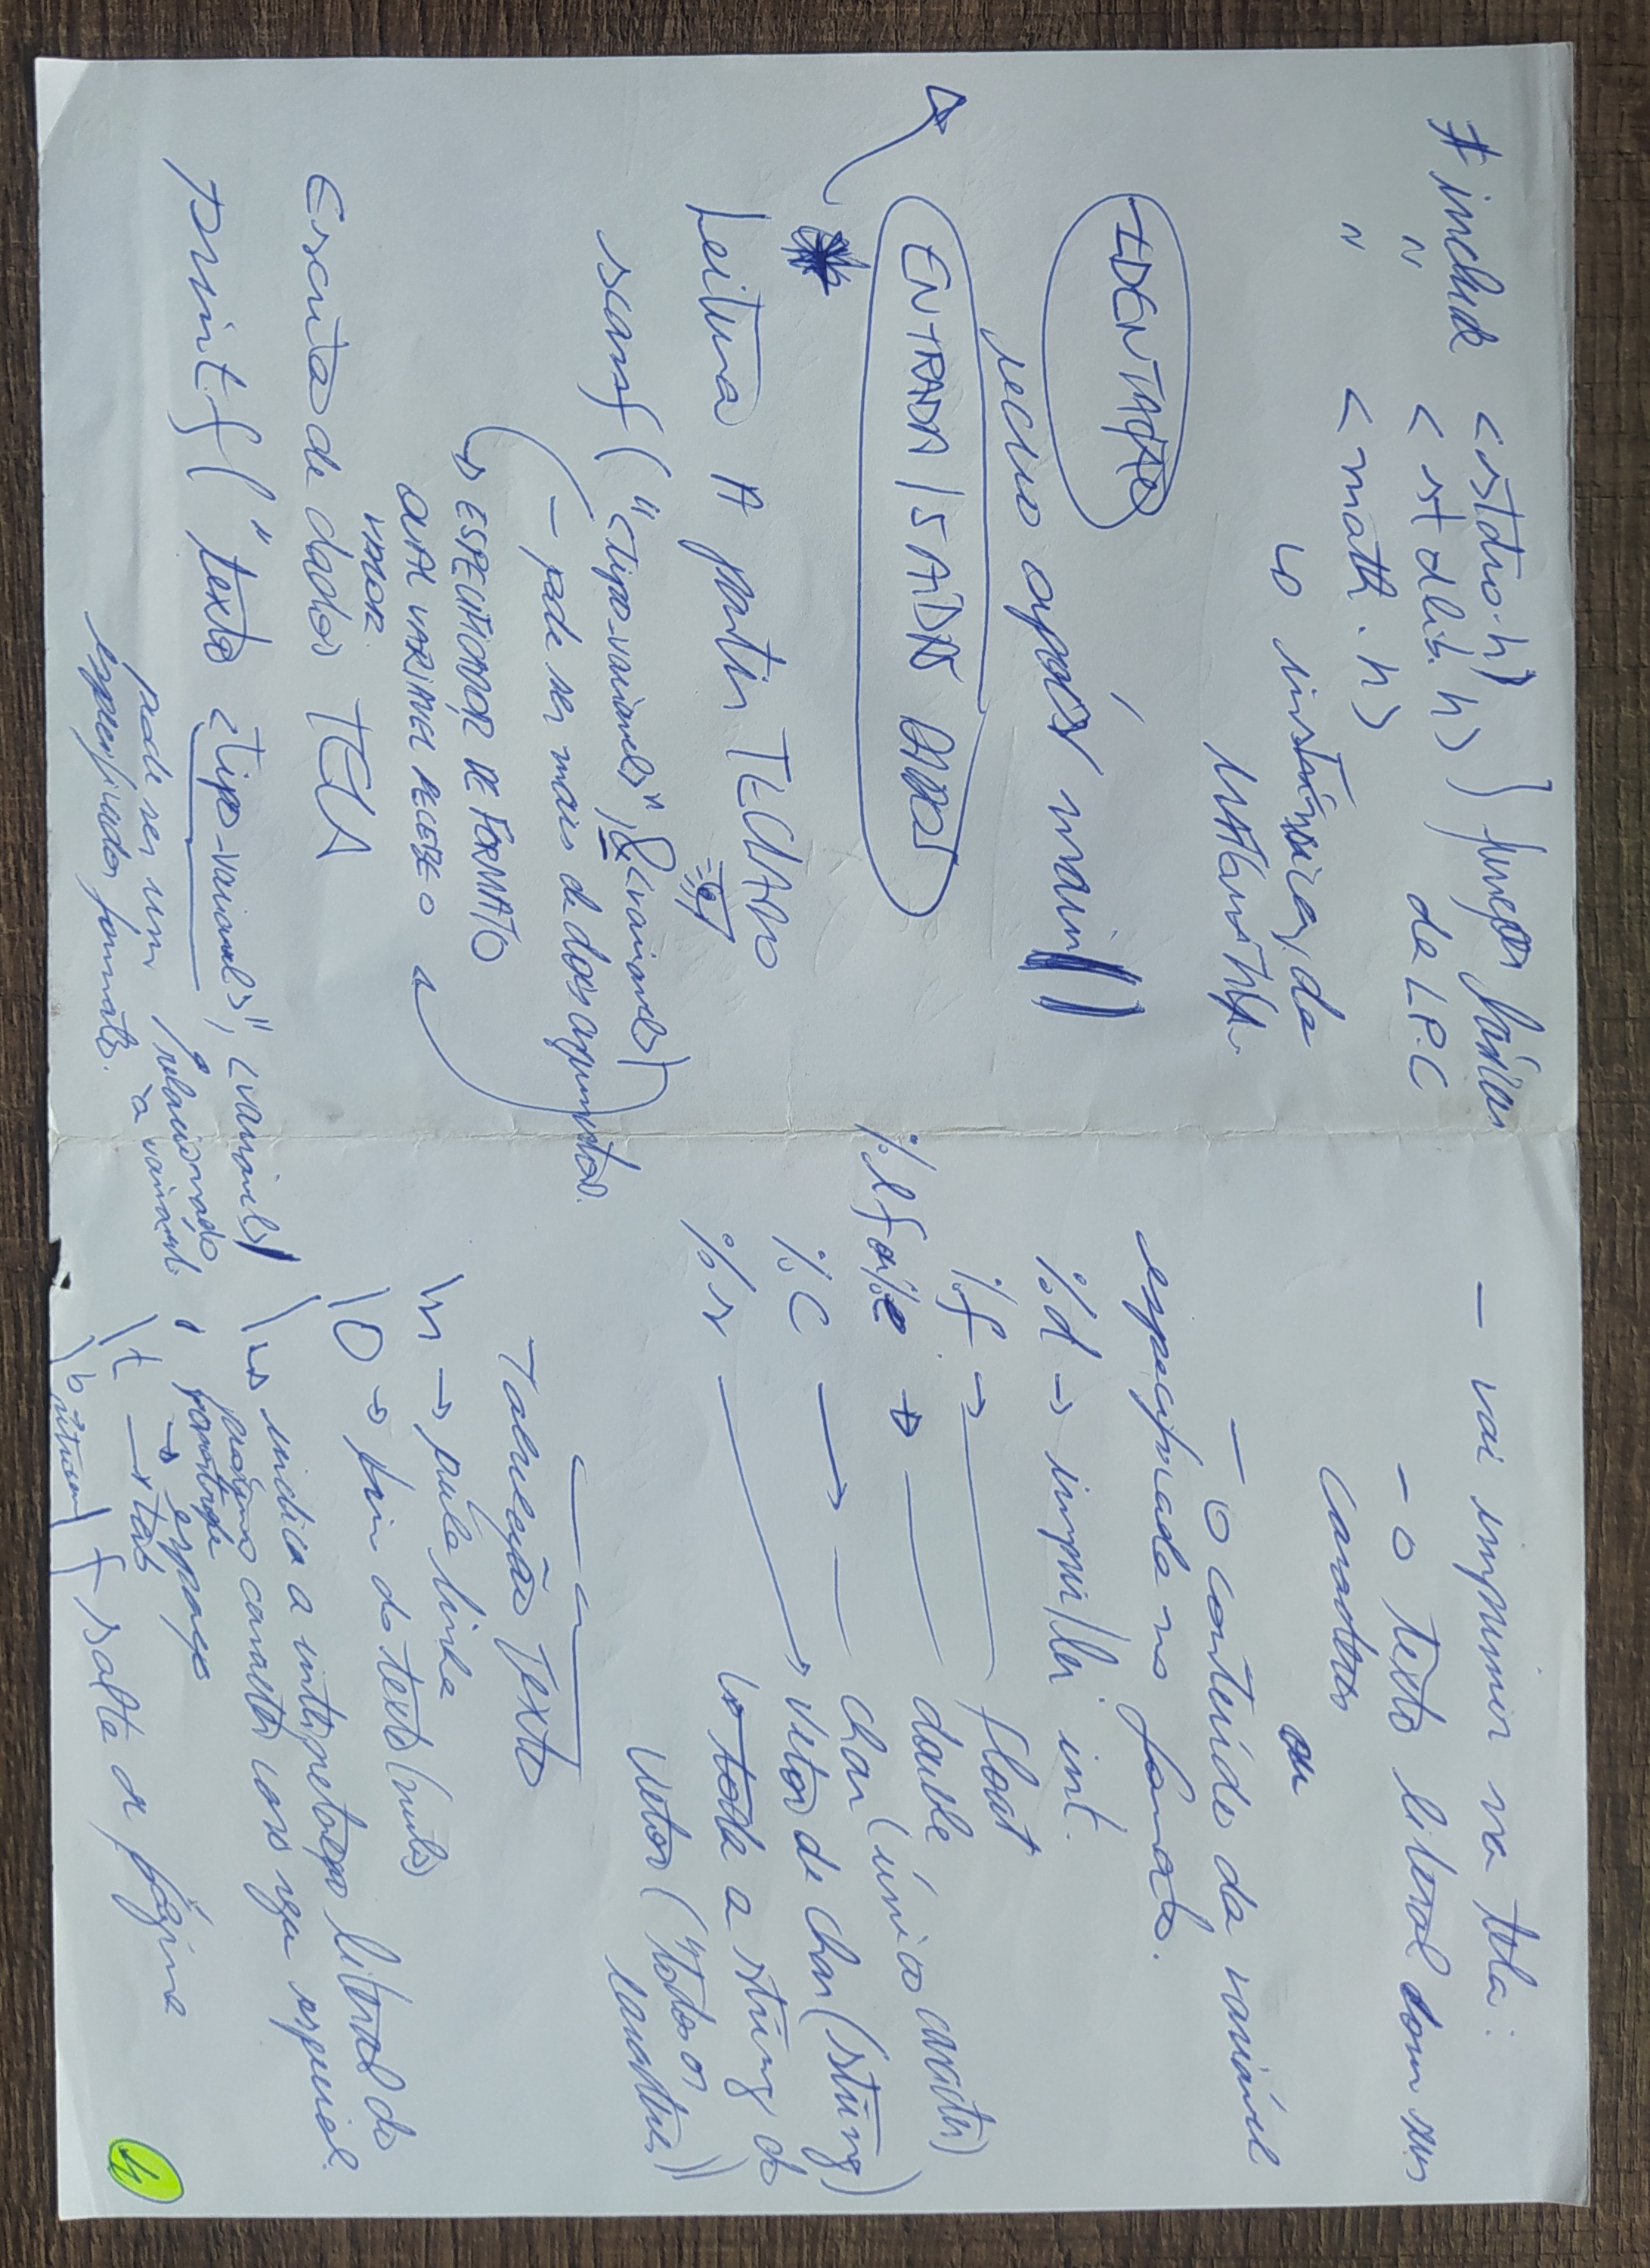 #include <stdio.h>
" <stdlib.h> } funções básicas
da LP.C
" <math.h>
↳ da
MATEMÁTICA
IDENTAÇÃO
recuo após main()
ENTRADA/SAÍDAS DADOS
*
Leitura A partir TECLADO
scanf("<tipo_variavel>", &<variavel>)
- pode ser mais de dois argumentos.
→ ESPECIFICADOR DE FORMATO
QUAL VARIÁVEL RECEBE O
VALOR.
Escrita de dados TELA
printf("texto <tipo_variavel>", <variavel>)
pode ser um
especificador formato.
relacionado
à variável
- vai imprimir na tela:
- o texto literal com seus
caracteres
ou
- o conteúdo da variável
especificada no formato.
%d → imprir/ler int.
%f → float
%lf ou %e → double
%c → char (único caracter)
%s → vetor de char (string)
↳ toda a string do
vetor ("todos os
caracteres")
Tabulação Texto
\n → pula linha
\0 → fim do texto (nulo)
\ ↳ indica a interpretação literal do
próximo caracter caso seja especial.
'
→ espaço
\t → tab
\b
\f salta a página
4